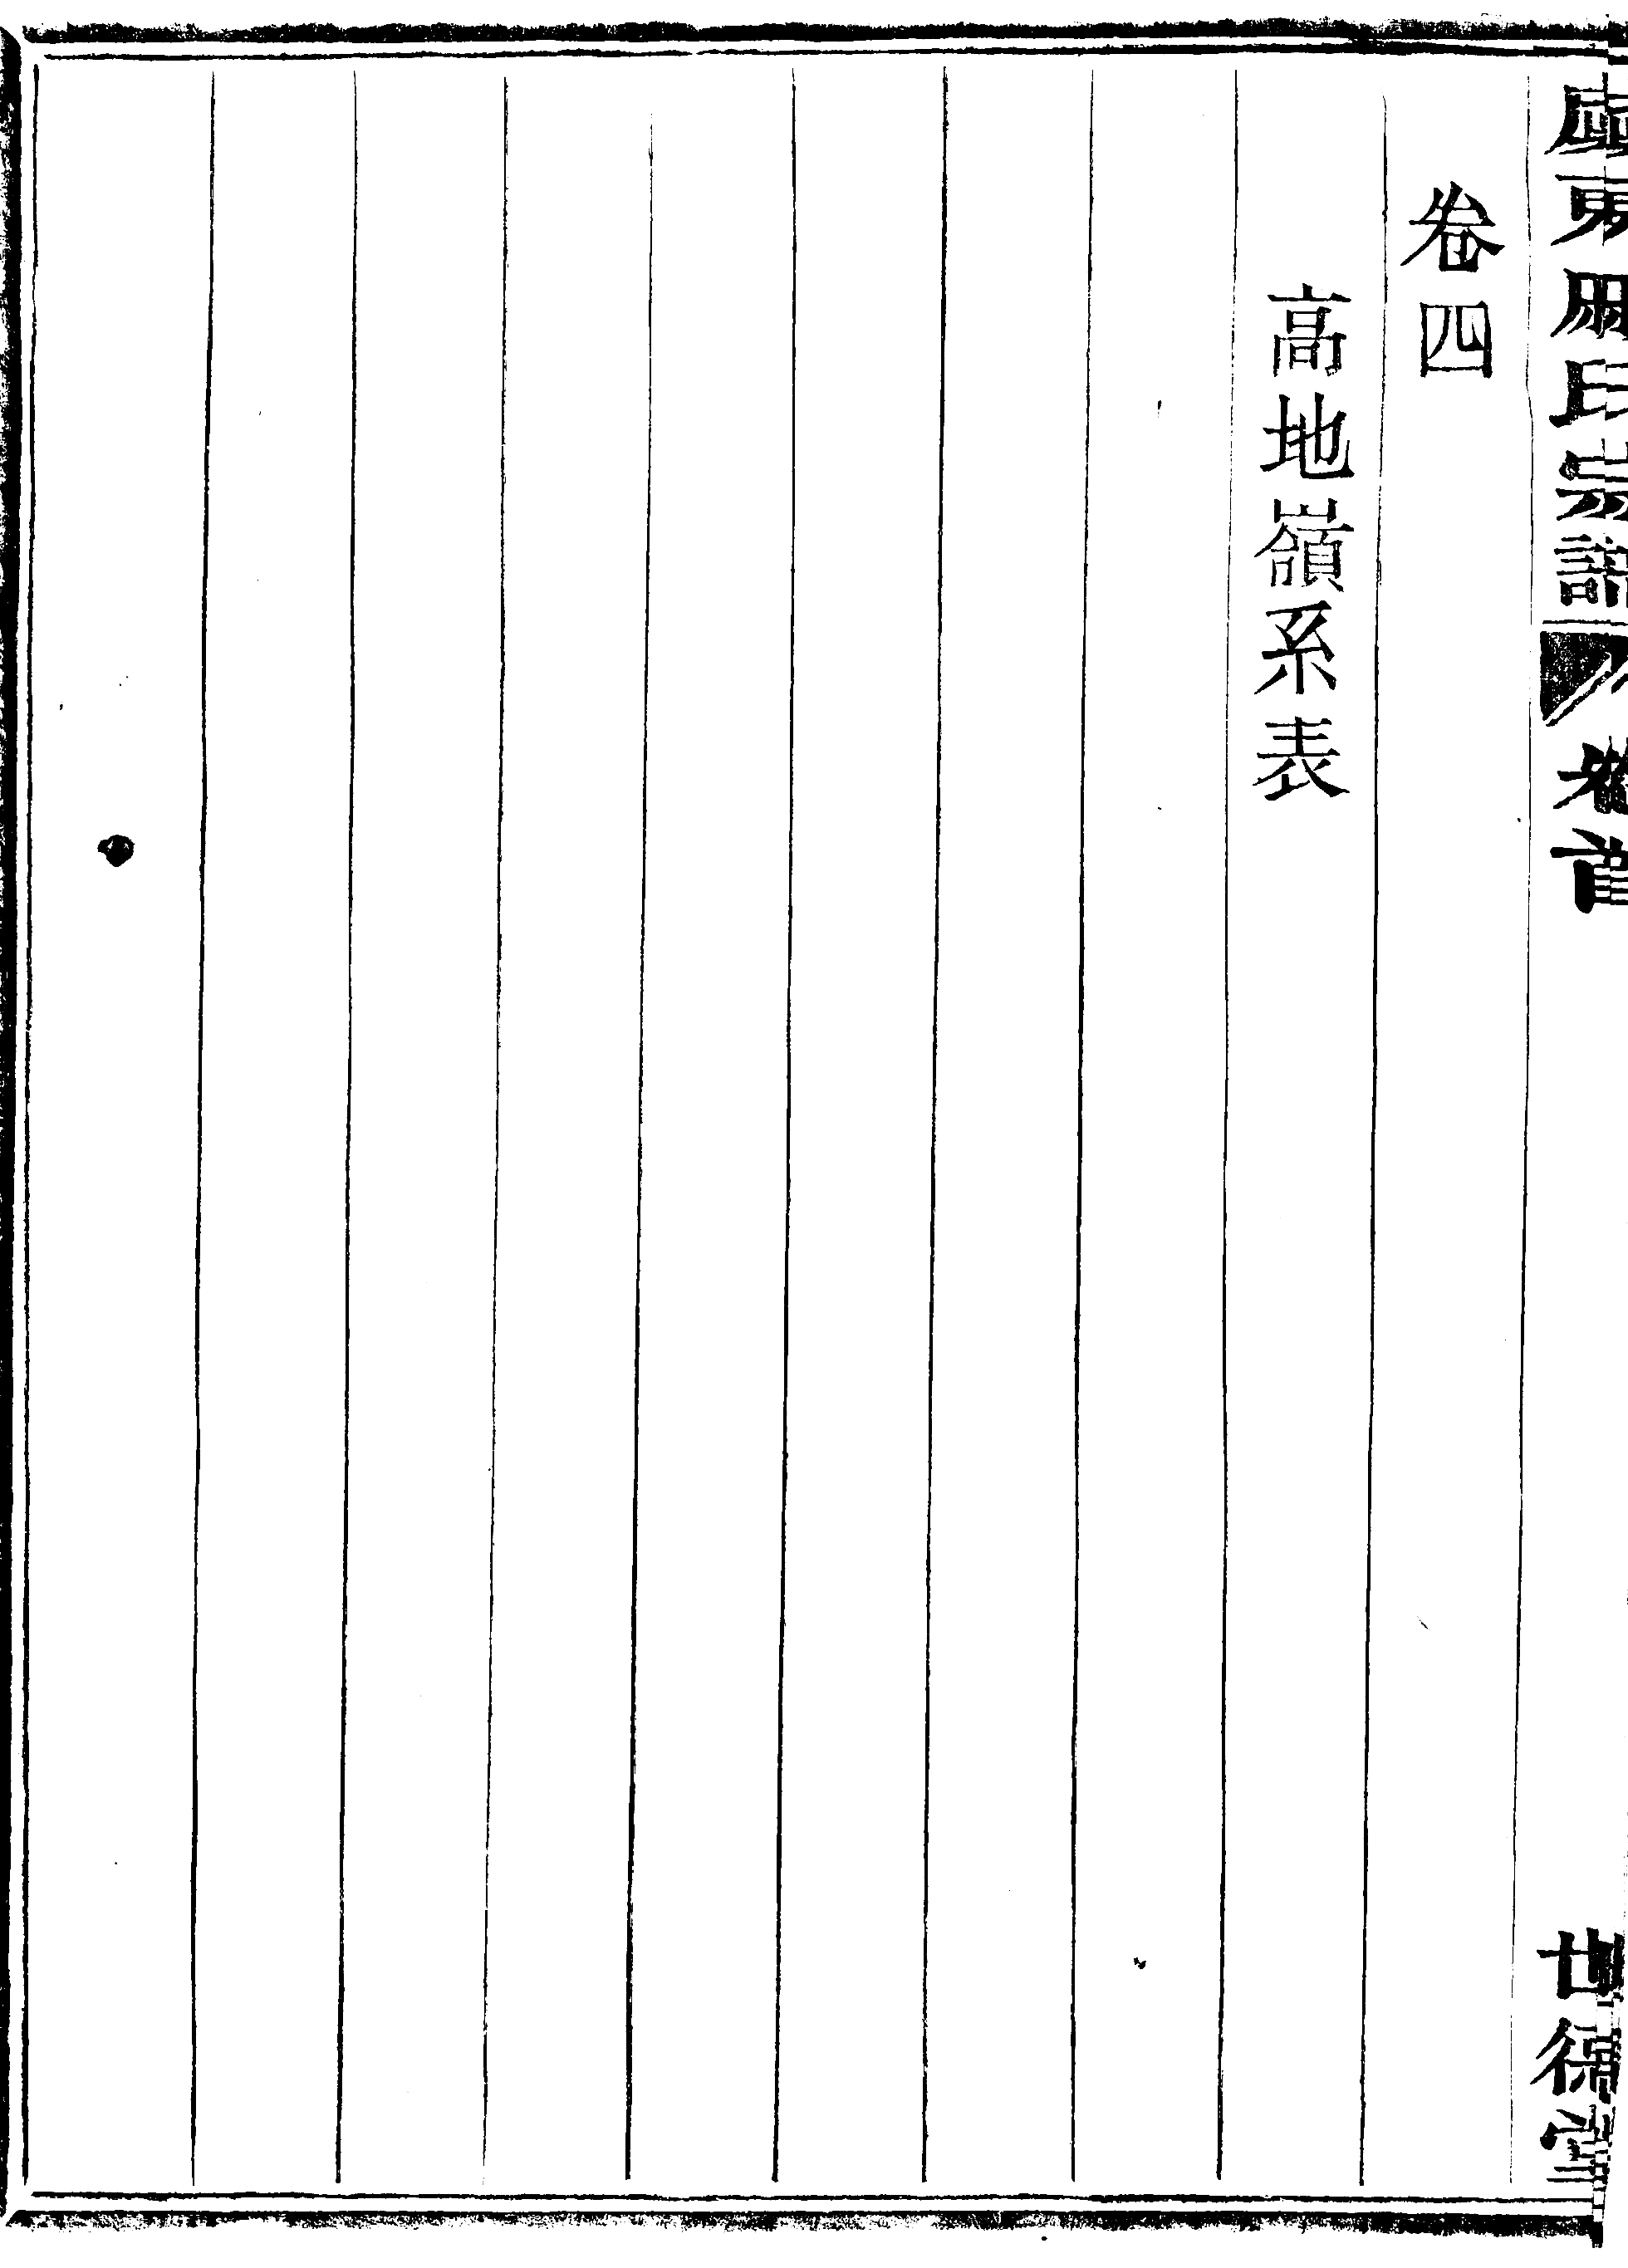 東周氏宗譜
卷首
世德堂
卷四
高地嶺系表